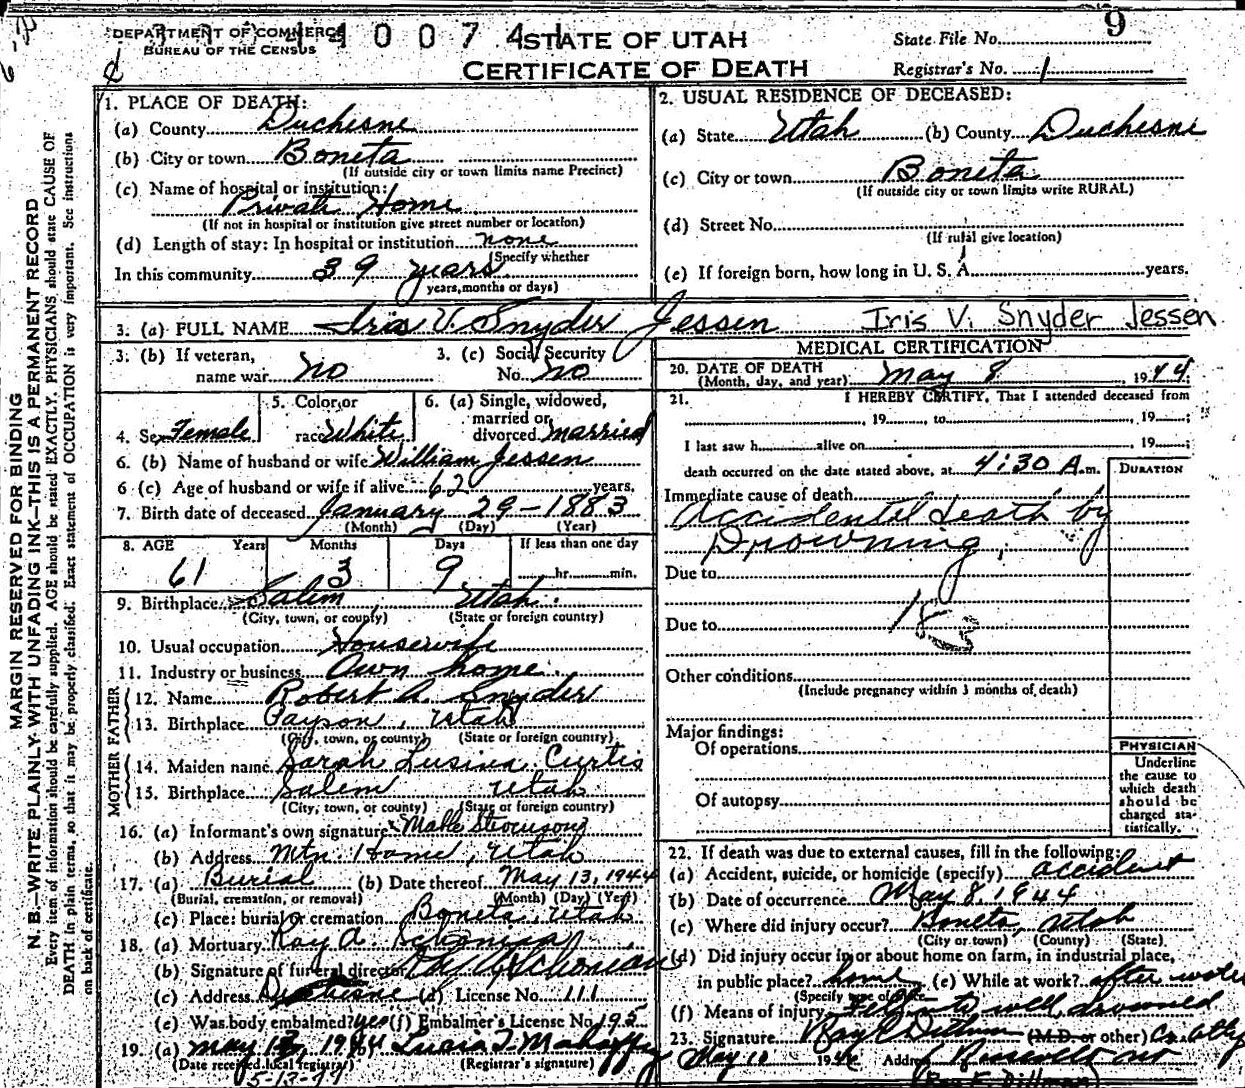 DEPARTMENT OF COMMERCE
BUREAU OF THE CENSUS
STATE OF UTAH
CERTIFICATE OF DEATH
State File No. 9
Registrar's No. 1
MARGIN RESERVED FOR BINDING
N. B.—WRITE PLAINLY WITH UNFADING INK—THIS IS A PERMANENT RECORD
Every item of information should be carefully supplied. AGE should be stated EXACTLY. PHYSICIANS should state CAUSE OF
DEATH in plain terms, so that it may be properly classified. Exact statement of OCCUPATION is very important. See instructions
on back of certificate.
1. PLACE OF DEATH:
(a) County Duchesne
(b) City or town Boneta
(If outside city or town limits name Precinct)
(c) Name of hospital or institution:
Private Home
(If not in hospital or institution give street number or location)
(d) Length of stay: In hospital or institution none
(Specify whether
In this community 39 years
years, months or days)
2. USUAL RESIDENCE OF DECEASED:
(a) State Utah (b) County Duchesne
(c) City or town Boneta
(If outside city or town limits write RURAL)
(d) Street No.
(If rural give location)
(e) If foreign born, how long in U. S. A. years.
3. (a) FULL NAME Iris V. Snyder Jessen Iris V. Snyder Jessen
3. (b) If veteran,
name war No
3. (c) Social Security
No. No
4. Sex Female
5. Color or
race White
6. (a) Single, widowed,
married or
divorced married
6. (b) Name of husband or wife William Jessen
6 (c) Age of husband or wife if alive 62 years.
7. Birth date of deceased January 29-1883
(Month) (Day) (Year)
8. AGE Years Months Days If less than one day
61 3 9 hr. min.
9. Birthplace Salem Utah
(City, town, or county) (State or foreign country)
10. Usual occupation Housewife
11. Industry or business Own home
FATHER
12. Name Robert A. Snyder
13. Birthplace Payson, Utah
(City, town, or county) (State or foreign country)
MOTHER
14. Maiden name Sarah Lusina Curtis
15. Birthplace Salem Utah
(City, town, or county) (State or foreign country)
16. (a) Informant's own signature Stevenson
(b) Address Mtn. Home, Utah
17. (a) Burial (b) Date thereof May 13, 1944
(Burial, cremation, or removal) (Month) (Day) (Year)
(c) Place: burial or cremation Boneta, Utah
18. (a) Mortuary Roy A.
(b) Signature of funeral director
(c) Address Duchesne (d) License No. 111
(e) Was body embalmed? yes (f) Embalmer's License No. 195
19. (a) May 13, 1944 (b) Lucia T. Mahaffey
(Date received local registrar) (Registrar's signature)
MEDICAL CERTIFICATION
20. DATE OF DEATH
(Month, day, and year) May 8, 1944;
21. I HEREBY CERTIFY, That I attended deceased from
, 19 , to , 19 ;
I last saw h alive on , 19 ;
death occurred on the date stated above, at 4:30 A. m.
DURATION
Immediate cause of death
Accidental death by
Drowning;
Due to
Due to 183
Other conditions
(Include pregnancy within 3 months of death)
Major findings:
Of operations
Of autopsy
PHYSICIAN
Underline
the cause to
which death
should be
charged sta-
tistically.
22. If death was due to external causes, fill in the following:
(a) Accident, suicide, or homicide (specify) accident
(b) Date of occurrence May 8, 1944
(c) Where did injury occur? Boneta, Utah
(City or town) (County) (State)
(d) Did injury occur in or about home on farm, in industrial place,
in public place? home (e) While at work? after water
(Specify type of place)
(f) Means of injury Fell into well, drowned
23. Signature Ray E Dillman (M.D. or other) Co. Atty
May 10 1944 Address Roosevelt Ut
(Ray E. Dillman)